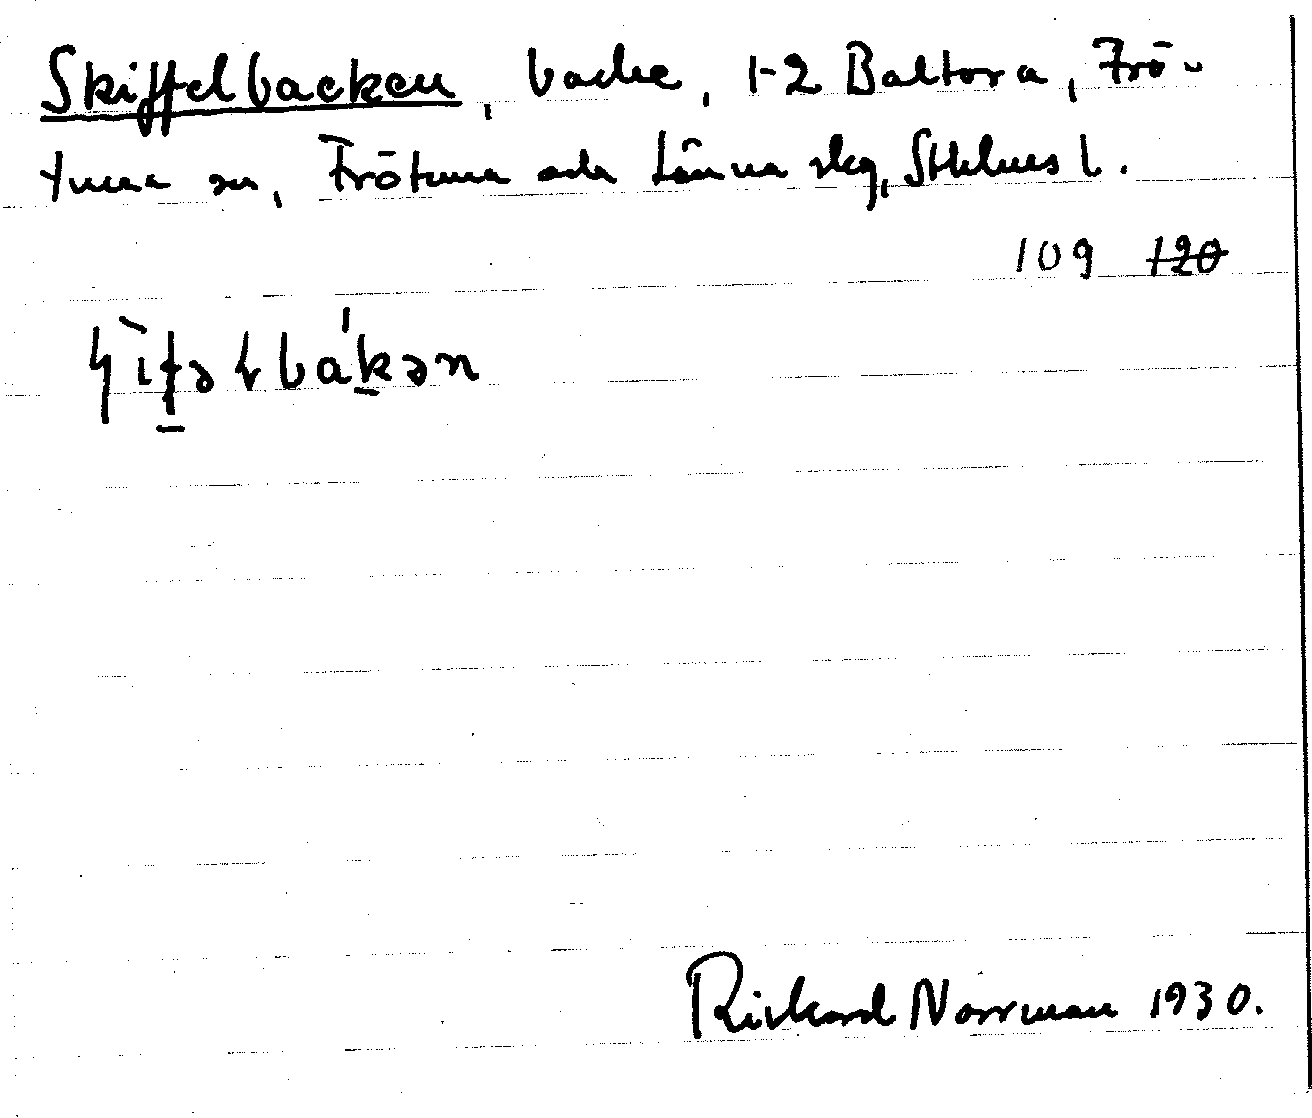 Skiffelbacken, backe, 1-2 Baltora, Frö-
tuna sn, Frötuna och Länna skg, Sthlms l.
109 120
Rickard Norrman 1930.